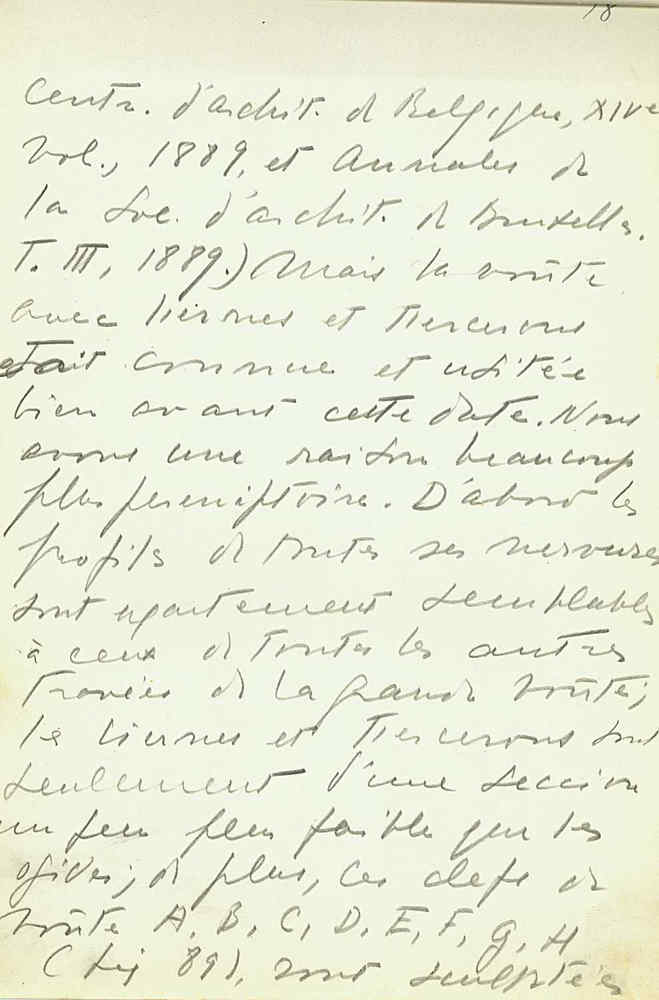 18
Centr. d'archit. de Belgique, XIVe
vol., 1889, et Annales de
la Soc. d'archit. de Bruxelles.
T. III, 1889.) Mais la voûte
avec liernes et tiercerons
était connue et usitée
bien avant cette date. Nous
avons une raison beaucoup
plus péremptoire. D'abord les
profils de toutes ses nervures
sont exactement semblables
à ceux de toutes les autres
travées de la grande voûte;
les liernes et tiercerons sont
seulement d'une section
un peu plus faible que les
ogives; de plus, les clefs de
voûte A, B, C, D, E, F, G, H
(fig 89), sont sculptées